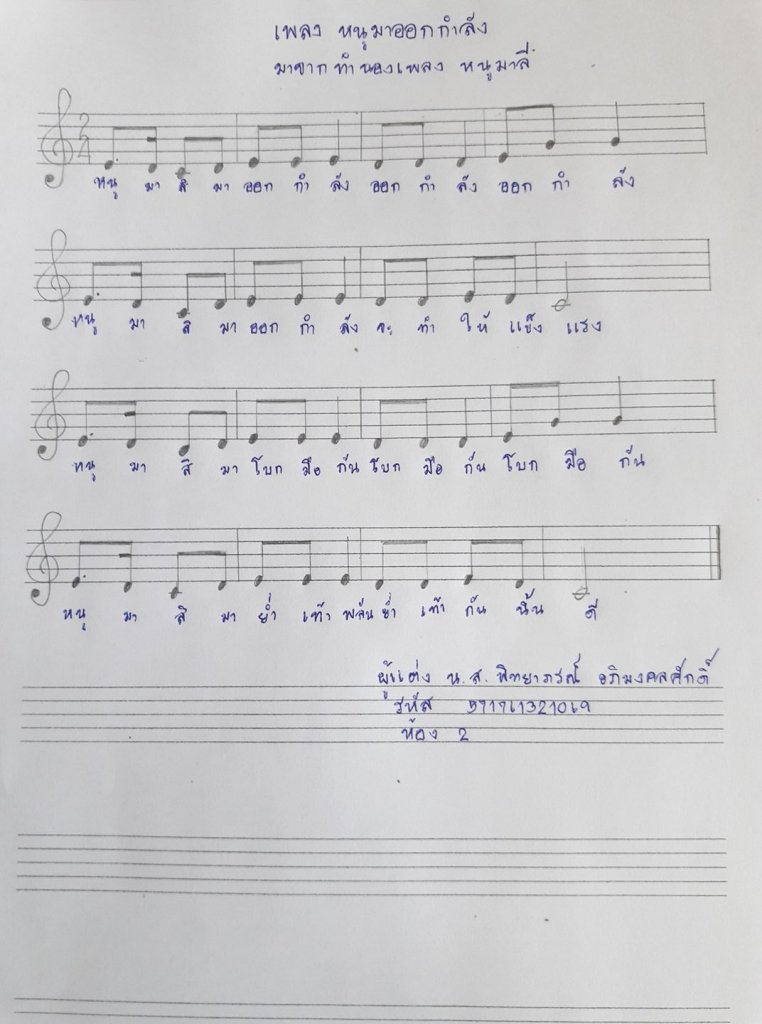 เพลง หนูมาออกกำลัง
มาจากทำนองเพลง หนูมาลี่
2
4
หนู มา สิ มา ออก กำ ลัง ออก กำ ลัง ออก กำ ลัง
หนู มา สิ มา ออก กำ ลัง จะ ทำ ให้ แข็ง แรง
หนู มา สิ มา โบก มือ กัน โบก มือ กัน โบก มือ กัน
หนู มา สิ มา ย่ำ เท้า พลัน ย่ำ เท้า กัน นั้น ดี
ผู้แต่ง น.ส. พิทยาภรณ์ อภิมงคลศักดิ์
รหัส
ห้อง 2